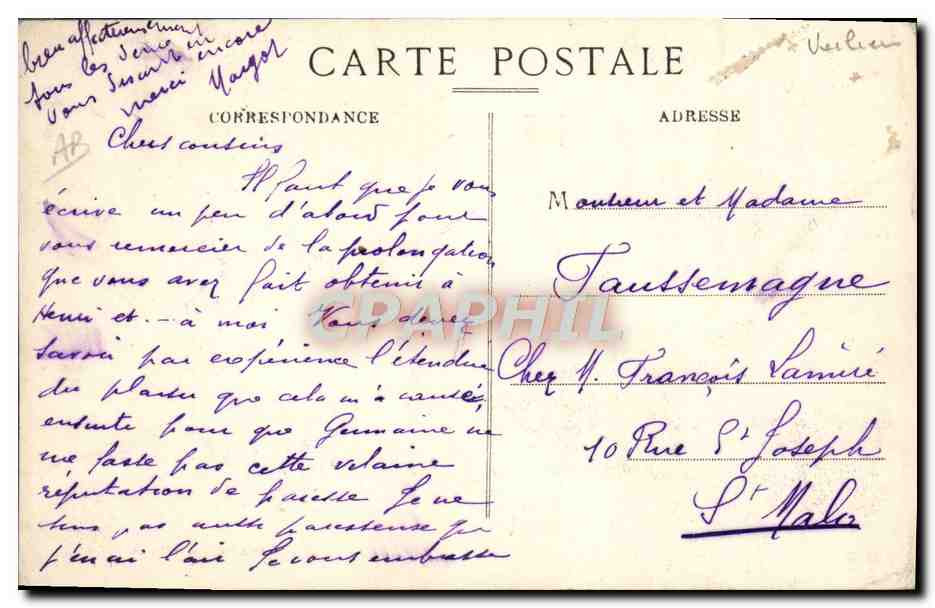 CARTE POSTALE
CORRESPONDANCE
ADRESSE
AB
Chers cousins
Il faut que je vous
écrive un peu d'abord pour
vous remercier de la prolongation
que vous avez fait obtenir à
Henri et - à moi Vous devez
savoir par expérience l'étendue
du plaisir que cela m'a causé,
ensuite pour que Germaine ne
me fasse pas cette vilaine
réputation de paresse Je ne
suis pas aussi paresseuse que
j'en ai l'air Je vous embrasse
bien affectueusement
tous les deux en
vous disant encore
merci Margot
Monsieur et Madame
Taussemagne
Chez M. François Lamiré
10 Rue St Joseph
St Malo
CPAPHIL